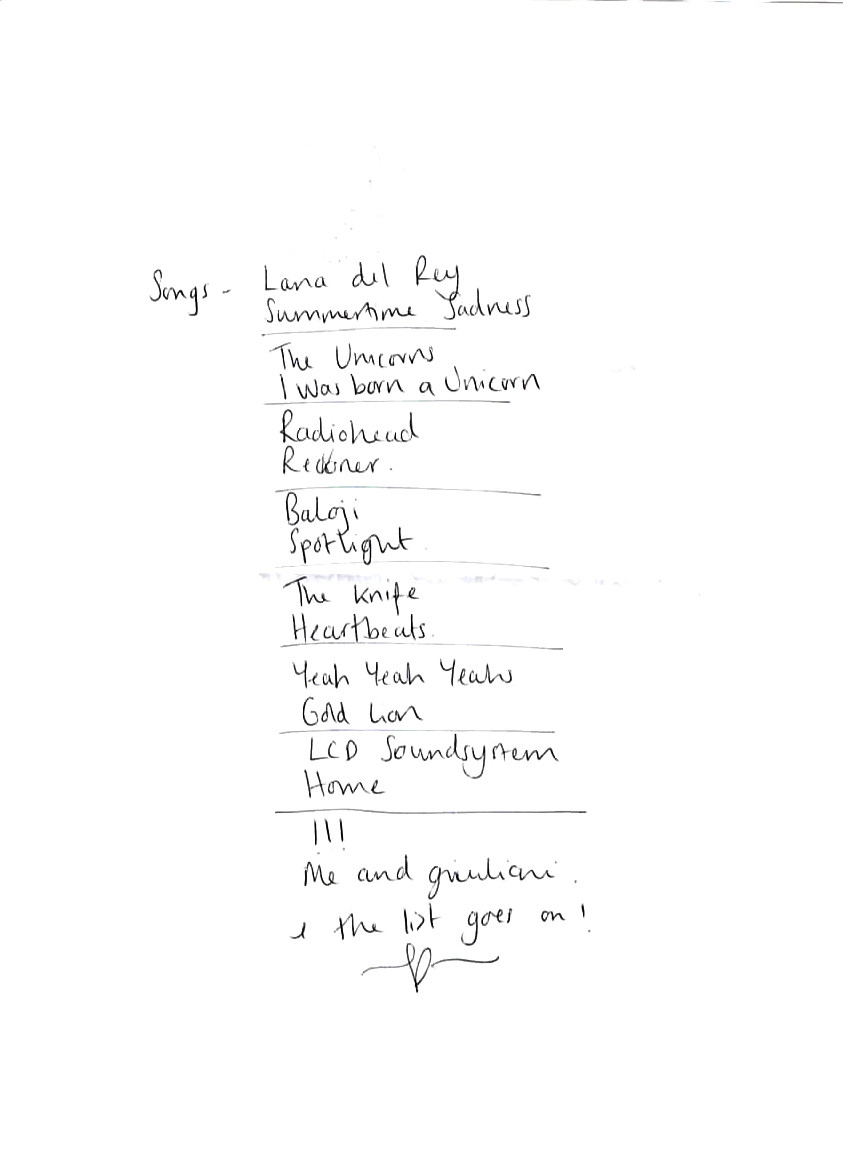 Songs - Lana del Rey
Summertime Sadness
The Unicorns
I was born a Unicorn
Radiohead
Reckoner.
Baloji
Spotlight.
The Knife
Heartbeats.
Yeah Yeah Yeahs
Gold Lion
LCD Soundsystem
Home
!!!
Me and giuliani.
& the list goes on!